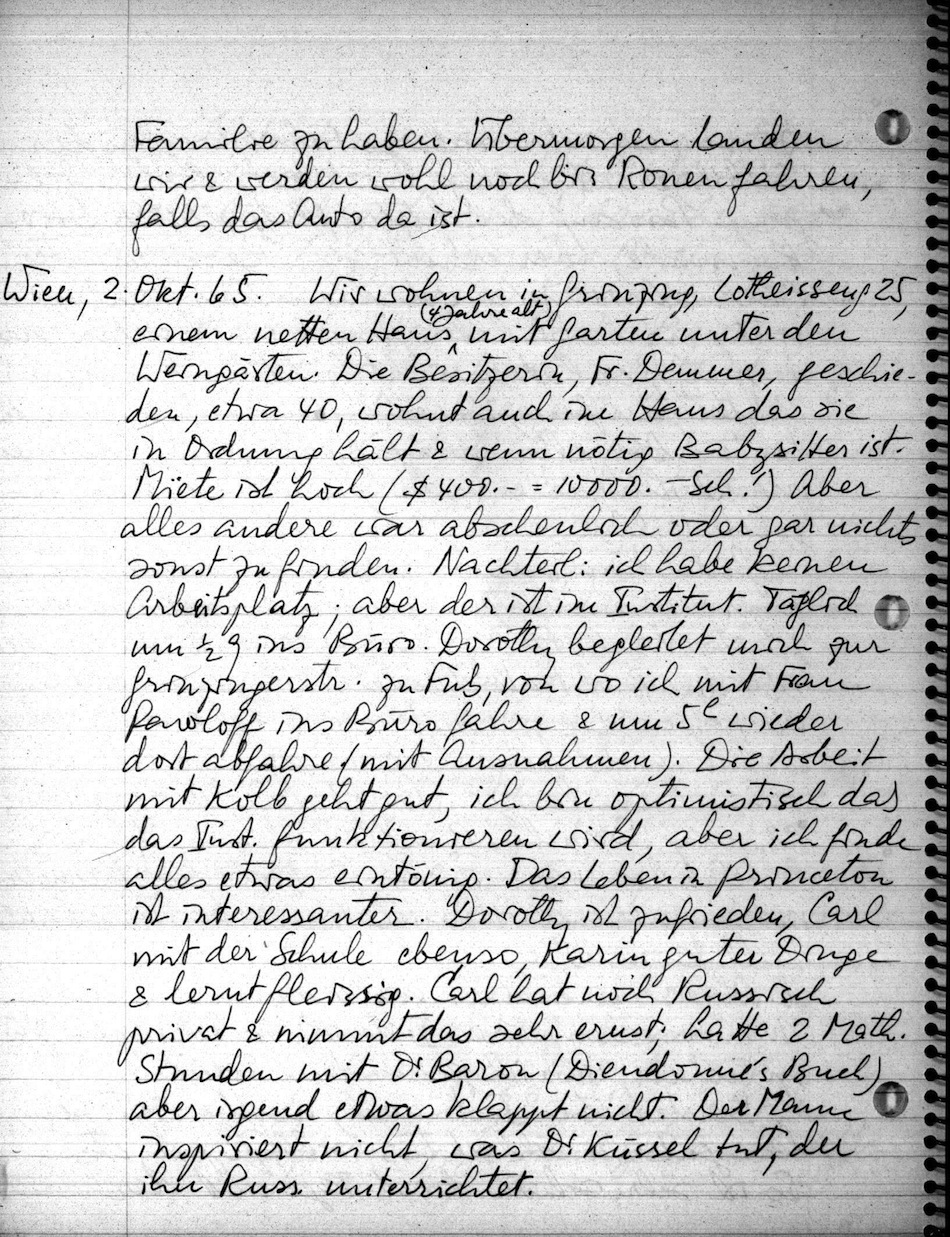 Familie zu haben. Übermorgen landen
wir & werden wohl noch bis Rouen fahren,
falls das Auto da ist.
Wien, 2. Okt. 65. Wir wohnen in Grinzing, Lotheisseng 25,
einem netten Haus (4 Jahre alt) mit Garten unter den
Weingärten. Die Besitzerin, Fr. Demmer, geschie-
den, etwa 40, wohnt auch im Haus das sie
in Ordnung hält & wenn nötig Babysitter ist.
Miete ist hoch ($400.- = 10000.- Sch.!) Aber
alles andere war abscheulich oder gar nichts
sonst zu finden. Nachteil: ich habe keinen
Arbeitsplatz; aber der ist im Institut. Täglich
um ½ 9 ins Büro. Dorothy begleitet mich zur
Grinzingerstr. zu Fuß, von wo ich mit Frau
Pawloff ins Büro fahre & um 5 wieder
dort abfahre (mit Ausnahmen). Die Arbeit
mit Kolb geht gut, ich bin optimistisch das
das Inst. funktionieren wird, aber ich finde
alles etwas eintönig. Das Leben in Princeton
ist interessanter. Dorothy ist zufrieden, Carl
mit der Schule ebenso, Karin guter Dinge
& lernt fleissig. Carl hat noch Russisch
privat & nimmt das sehr ernst; hatte 2 Math.
Stunden mit Dr Baron (Dieudonné's Buch)
aber irgend etwas klappt nicht. Der Mann
inspiriert nicht, was Dr Küssel tut, der
ihn Russ. unterrichtet.